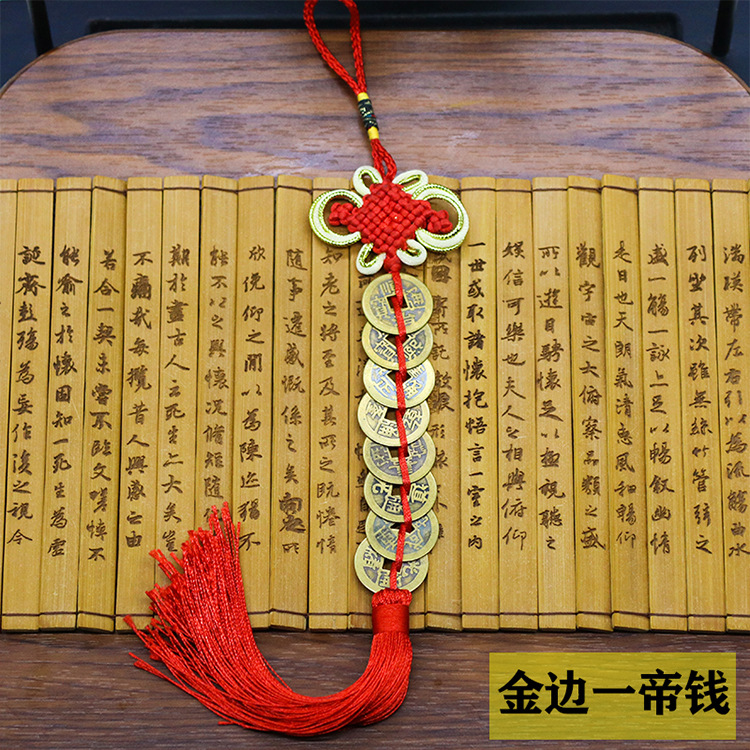 湍暎帶左右引以為流觴曲水
列坐其次雖無絲竹管弦之
盛一觴一詠亦足以暢敘幽情
是日也天朗氣清惠風和暢仰
觀宇宙之大俯察品類之盛
所以遊目騁懷足以極視聽之
娛信可樂也夫人之相與俯仰
一世或取諸懷抱悟言一室之內
知老之將至及其所之既惓情
隨事遷感慨係之矣向之
欣俛仰之閒以為陳迹猶
能不以之興懷況脩短隨
期於盡古人云死生亦大矣豈
不痛哉每攬昔人興感之由
若合一契未嘗不臨文嗟悼不
能喻之於懷固知一死生為虛
誕齊彭殤為妄作後之視今
金边一帝钱